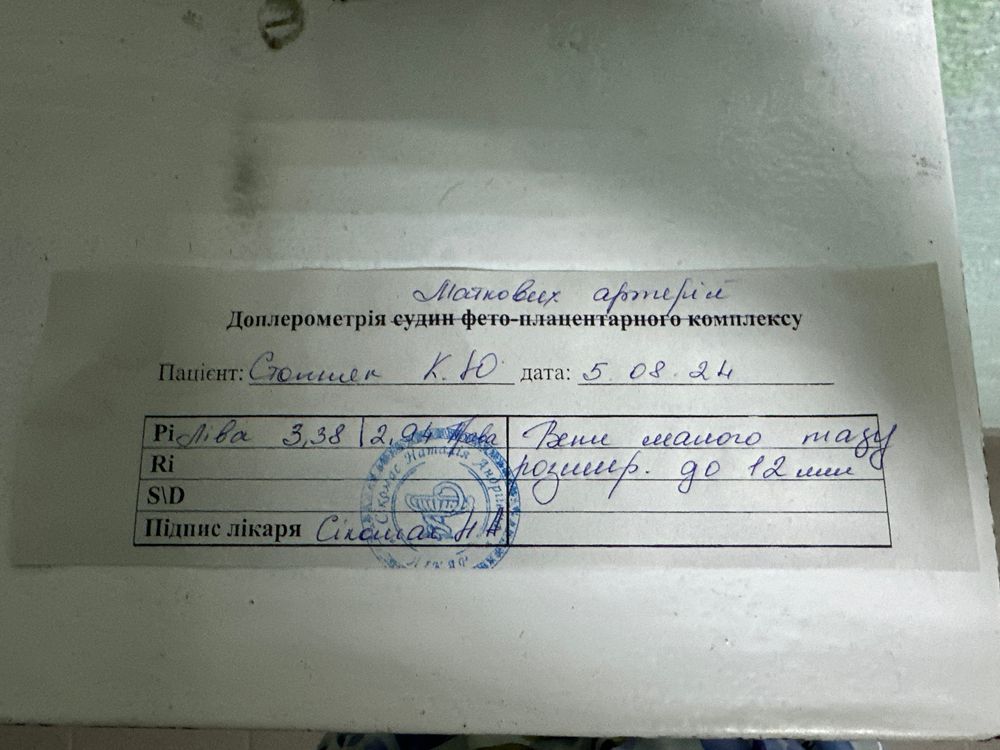 Маткових артерій
Доплерометрія судин фето-плацентарного комплексу
Пацієнт: К.Ю. дата: 5.08.24
Рі Ліва 3,38 2,94 Права Вени малого тазу
Ri розшир. до 12 мм
S\D
Підпис лікаря Сікомас Н А
Сікомас Наталія Андрі